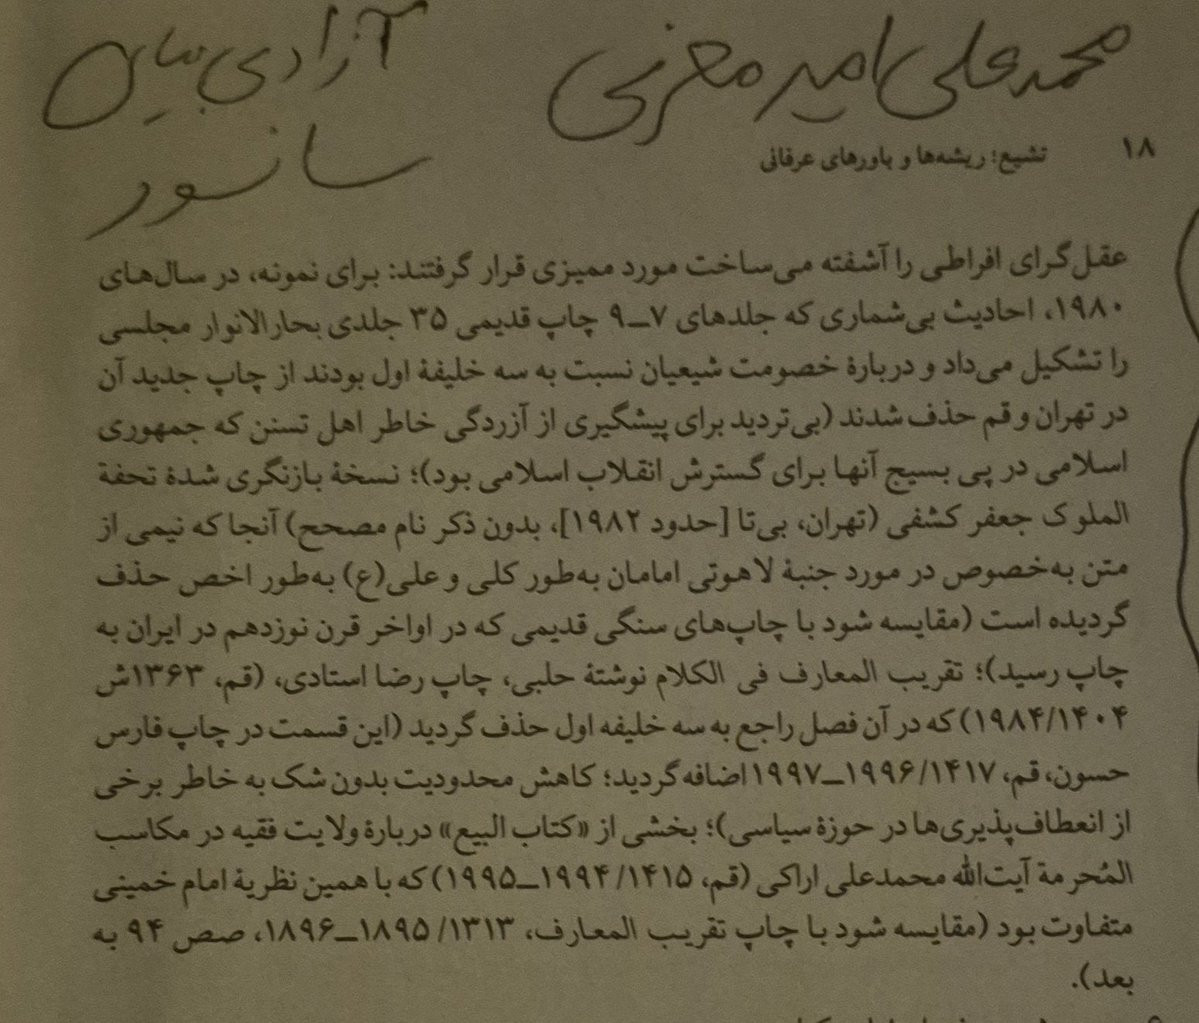 محمدعلی امیر معزی
آزادی بیان
سانسور
۱۸ تشیع: ریشه‌ها و باورهای عرفانی
عقل‌گرای افراطی را آشفته می‌ساخت مورد ممیزی قرار گرفتند: برای نمونه، در سال‌های
۱۹۸۰، احادیث بی‌شماری که جلدهای ۷ـ۹ چاپ قدیمی ۳۵ جلدی بحارالانوار مجلسی
را تشکیل می‌داد و دربارهٔ خصومت شیعیان نسبت به سه خلیفهٔ اول بودند از چاپ جدید آن
در تهران و قم حذف شدند (بی‌تردید برای پیشگیری از آزردگی خاطر اهل تسنن که جمهوری
اسلامی در پی بسیج آنها برای گسترش انقلاب اسلامی بود)؛ نسخهٔ بازنگری شدهٔ تحفة
الملوک جعفر کشفی (تهران، بی‌تا [حدود ۱۹۸۲]، بدون ذکر نام مصحح) آنجا که نیمی از
متن به‌خصوص در مورد جنبهٔ لاهوتی امامان به‌طور کلی و علی(ع) به‌طور اخص حذف
گردیده است (مقایسه شود با چاپ‌های سنگی قدیمی که در اواخر قرن نوزدهم در ایران به
چاپ رسید)؛ تقریب المعارف فی الکلام نوشتهٔ حلبی، چاپ رضا استادی، (قم، ۱۳۶۳ش
۱۹۸۴/۱۴۰۴) که در آن فصل راجع به سه خلیفه اول حذف گردید (این قسمت در چاپ فارس
حسون، قم، ۱۹۹۶/۱۴۱۷ـ۱۹۹۷ اضافه گردید؛ کاهش محدودیت بدون شک به خاطر برخی
از انعطاف‌پذیری‌ها در حوزهٔ سیاسی)؛ بخشی از «کتاب البیع» دربارهٔ ولایت فقیه در مکاسب
المُحرمة آیت‌الله محمدعلی اراکی (قم، ۱۹۹۴/۱۴۱۵ـ۱۹۹۵) که با همین نظریهٔ امام خمینی
متفاوت بود (مقایسه شود با چاپ تقریب المعارف، ۱۸۹۵/۱۳۱۳ـ۱۸۹۶، صص ۹۴ به
بعد).